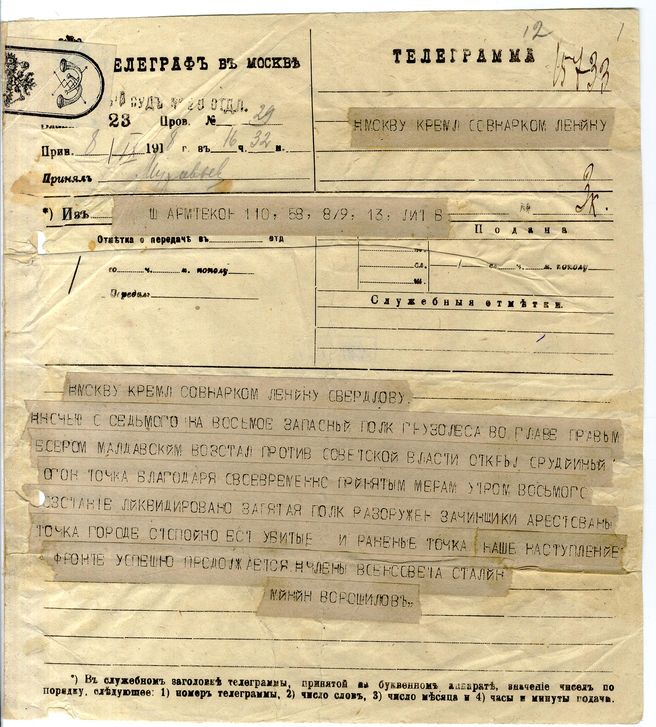 12 1
ТЕЛЕГРАФЪ ВЪ МОСКВѢ
ТЕЛЕГРАММА
15733
23 Пров. № 29
НМСКВУ КРЕМЛ СОВНАРКОМ ЛЕНИНУ
Прин. 8/IX 1918 г. въ 16 ч. 32 м.
Принялъ Муравьев
*) Изъ Ш АРМТЕКОН 110, 58, 8/9, 13, ЛИТ В №
Подана
Отмѣтка о передачѣ въ отд
го ч. м. пополу
сл. ч. м. пополу
Передалъ:
Служебныя отмѣтки.
НМСКВУ КРЕМЛ СОВНАРКОМ ЛЕНИНУ СВЕРДЛОВУ
С СЕДЬМОГО НА ВОСЬМОЕ ЗАПАСНЫЙ ПОЛК ГРУЗОЛЕСА ВО ГЛАВЕ ПРАВЫМ
ЕСЕРОМ МАЛДАВСКИМ ВОЗСТАЛ ПРОТИВ СОВЕТСКОЙ ВЛАСТИ ОТКРЫЛ ОРУДИЙНЫЙ
ОГОН ТОЧКА БЛАГОДАРЯ СВОЕВРЕМЕННО ПРИНЯТЫМ МЕРАМ УТРОМ ВОСЬМОГО
ВОЗСТАНИЕ ЛИКВИДИРОВАНО ЗАПЯТАЯ ПОЛК РАЗОРУЖЕН ЗАЧИНЩИКИ АРЕСТОВАНЫ
ТОЧКА ГОРОДЕ СПОКОЙНО ЕСТ УБИТЫЕ И РАНЕНЫЕ ТОЧКА НАШЕ НАСТУПЛЕНИЕ
ФРОНТЕ УСПЕШНО ПРОДОЛЖАЕТСЯ НЧЛЕНЫ ВОЕНСОВЕТА СТАЛИН
МИНИН ВОРОШИЛОВЪ
*) Въ служебномъ заголовкѣ телеграммы, принятой на буквенномъ аппаратѣ, значеніе чиселъ по
порядку, слѣдующее: 1) номеръ телеграммы, 2) число словъ, 3) число мѣсяца и 4) часы и минуты подачи.